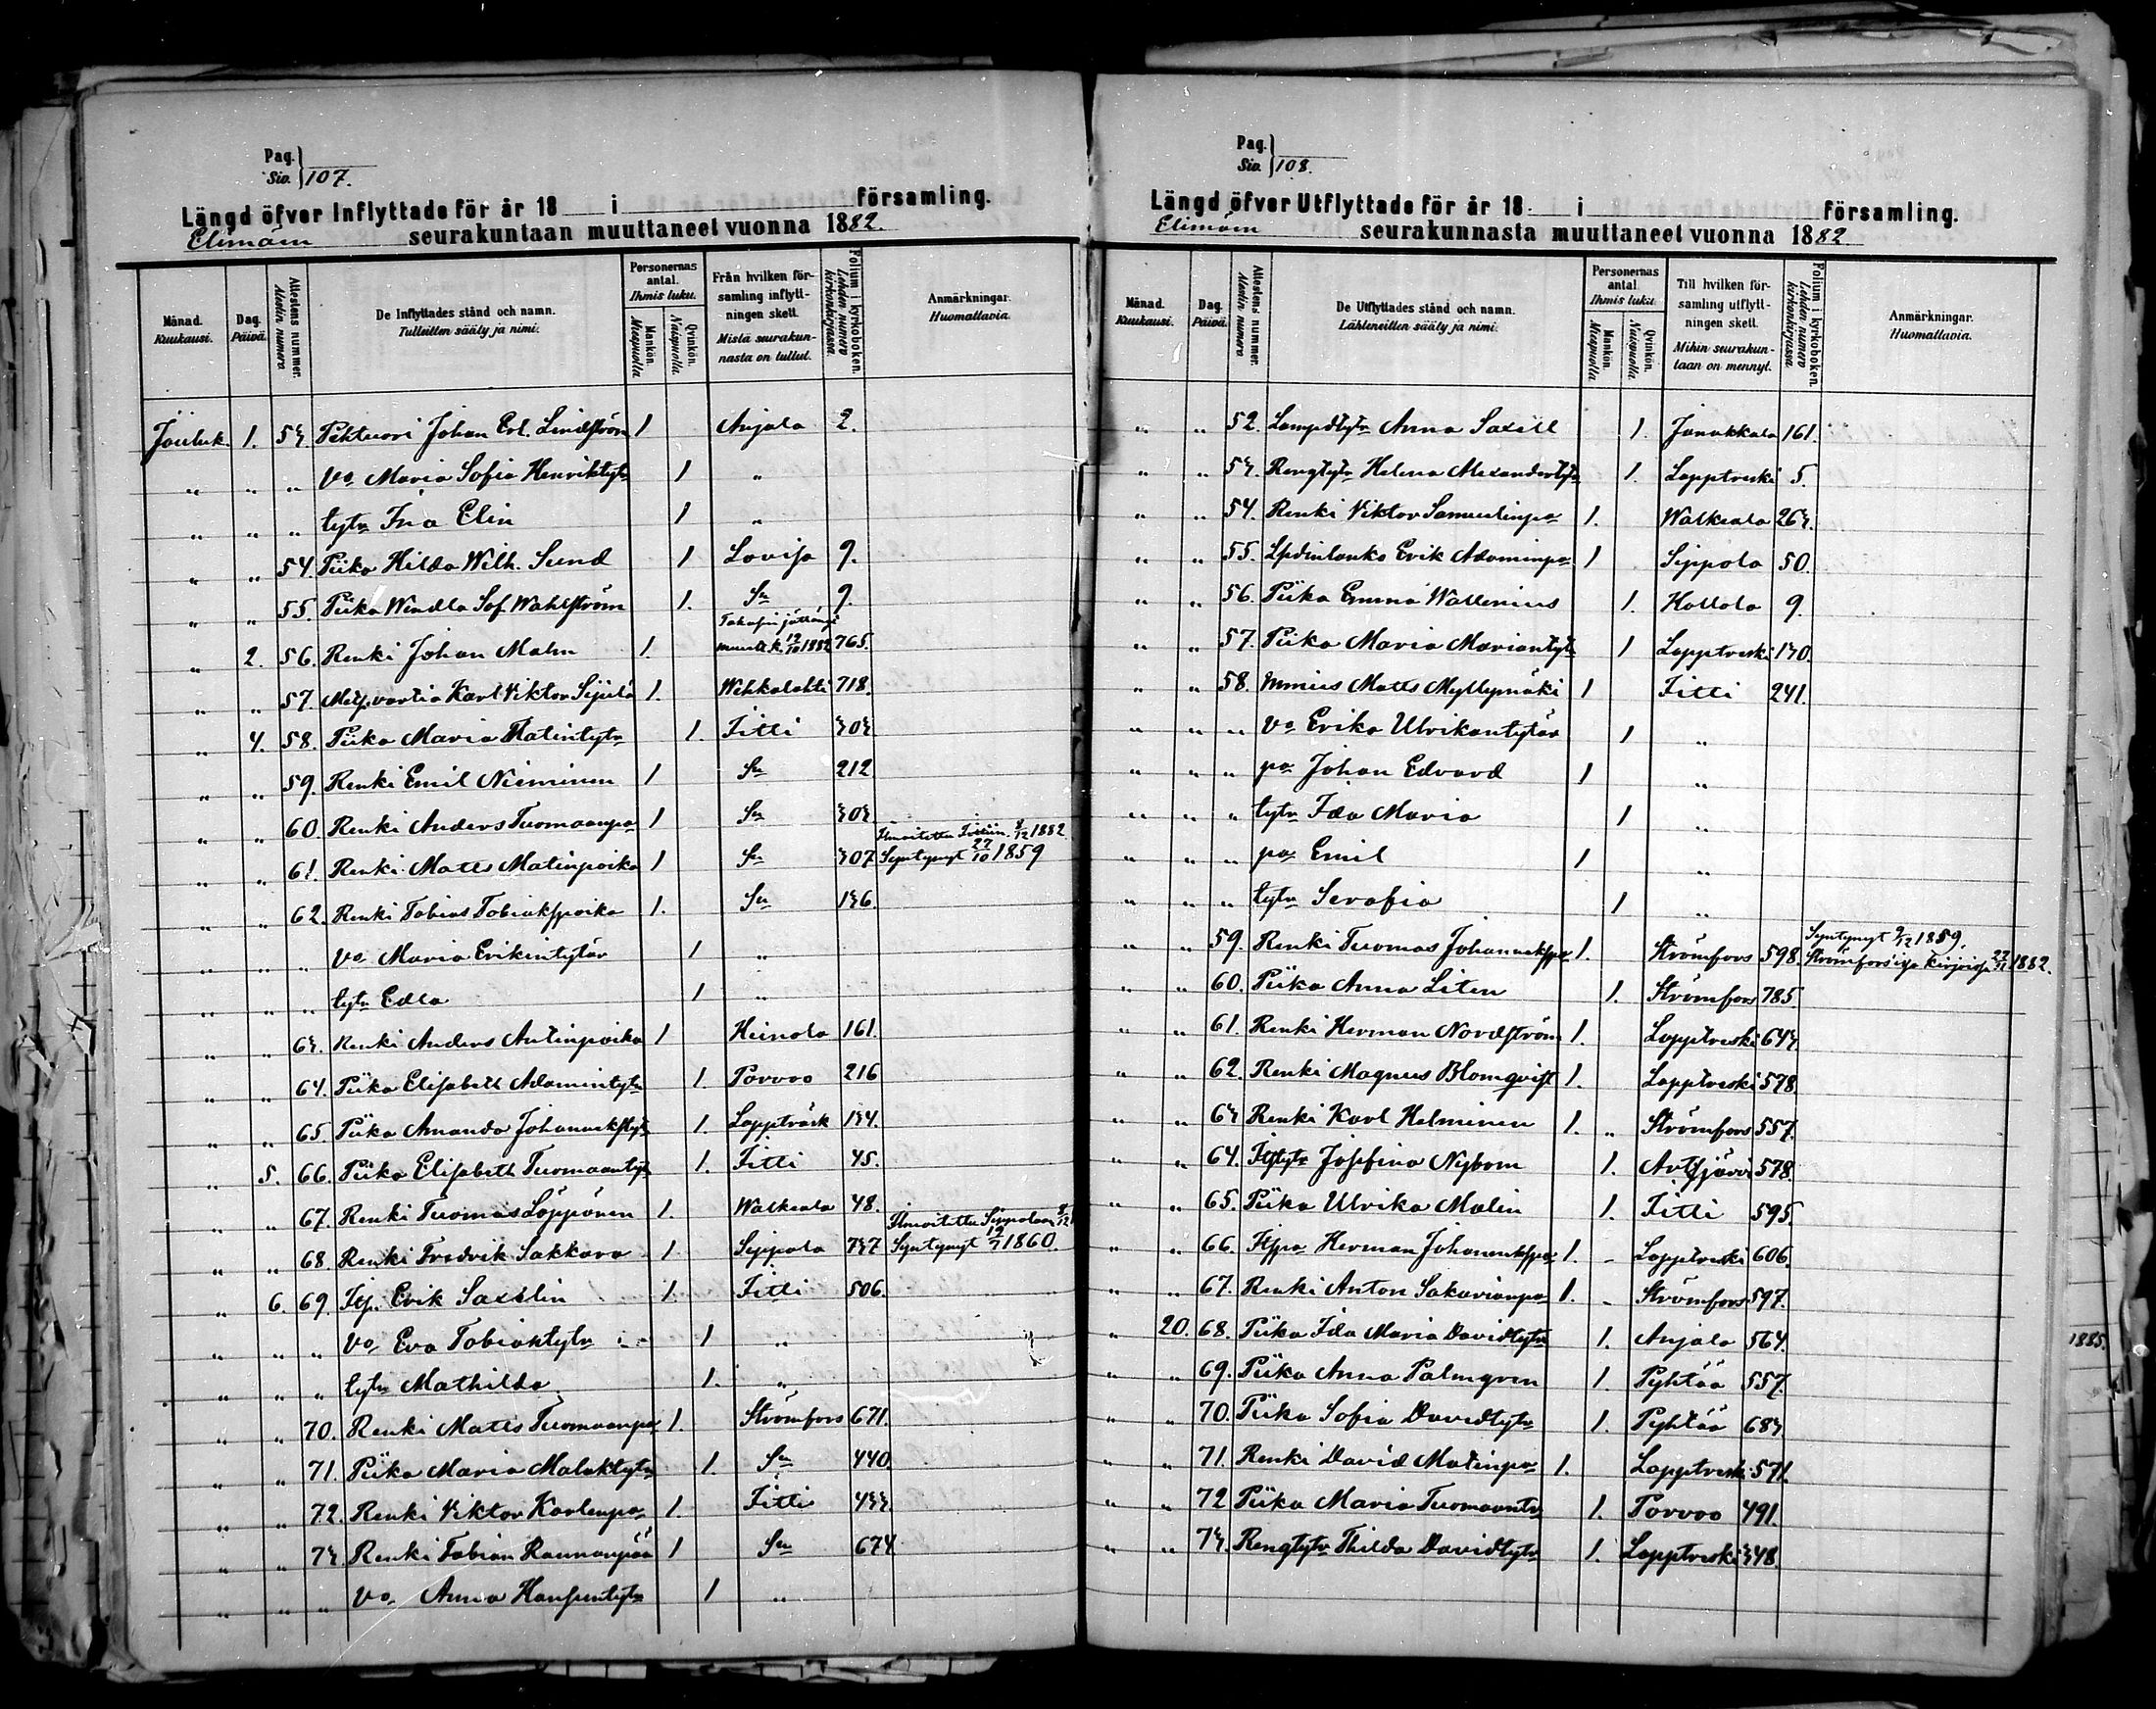 Pag.
Siv. 107.
Längd öfver Inflyttade för år 18 i församling.
Elimäen seurakuntaan muuttaneet vuonna 1882.
Månad. Kuukausi. Dag. Päivä. Attestens nummer. Alestin numero. De Inflyttades stånd och namn. Tulleitten sääty ja nimi. Personernas antal. Ihmis luku. Mankön. Miespuolia. Qvinkön. Naispuolia. Från hvilken församling inflyttningen skett. Mistä seurakunnasta on tullut. Folium i kyrkoboken. Lehden numero kirkonkirjassa. Anmärkningar. Huomattavia.
Jouluk. 1. 53. Johan Erl. Lindström 1 Anjala 2.
" " " vo Maria Sofia Henriktytr 1 "
" " " tytr Ina Elin 1 "
" " 54. Piika Hilda Wilh. Sund 1 Lovisa 9.
" " 55. Piika Wendla Sof. Wahlström 1. Sn 9.
" 2. 56. Renki Johan Malm 1. 1882 765.
" " 57. Karl Viktor 1. Wehkalahti 718.
" 4. 58. Piika Maria Matintytr 1. Iitti 303
" " 59. Renki Emil Nieminen 1 Sn 212
" " 60. Renki Anders Tuomaanpa 1 Sn 303
" " 61. Renki Matts Matinpoika 1 Sn 307 Ilmoitettu Iittiin 1882 Syntynyt 27/10 1859
" " 62. Renki Tobias Tobiakspoika 1. Sn 136.
" " " vo Maria Erikintytär 1 "
" " " tytr Edla 1 "
" " 63. Renki Anders Antinpoika 1 Heinola 161.
" " 64. Piika Elisabeth Adamintytr 1. Porvoo 216
" " 65. Piika Amanda Johanнekstyt 1. Lappträsk 134.
" 5. 66. Piika Elisabeth Tuomaantyt 1. Iitti 45.
" " 67. Renki Tuomas Löppönen 1. Walkeala 48.
" " 68. Renki Fredrik Sakkara 1. Sippola 737 Ilmoitettu Sippolaan 8/12 Syntynyt 1860.
" 6. 69. Itj. Erik Saxelin 1. Iitti 506.
" " " vo Eva Tobiaktytr 1 "
" " " tytr Mathilda 1. "
" " 70. Renki Matts Tuomaanpa 1. Strömfors 671.
" " 71. Piika Maria Malaktytr 1. Sn 440.
" " 72. Renki Viktor Karlenpa 1. Iitti 433.
" " 73. Renki Fabian Rannanpää 1 Sn 674
" " " vo Anna Hansentytr 1 "
Pag.
Siv. 108.
Längd öfver Utflyttade för år 18 i församling.
Elimäen seurakunnasta muuttaneet vuonna 1882
Månad. Kuukausi. Dag. Päivä. Attestens nummer. Alestin numero. De Utflyttades stånd och namn. Lähteneitten sääty ja nimi. Personernas antal. Ihmis luku. Mankön. Miespuolia. Qvinkön. Naispuolia. Till hvilken församling utflyttningen skett. Mihin seurakuntaan on mennyt. Folium i kyrkoboken. Lehden numero kirkonkirjassa. Anmärkningar. Huomattavia.
" " 52. Lampdtytr Anna Saxell 1. Janakkala 161.
" " 53. Rengtytr Helena Alexandertytr 1. Lapptreski 5.
" " 54. Renki Viktor Samuelinpa 1. Walkeala 263.
" " 55. Erik Adaminpa 1 Sippola 50.
" " 56. Piika Emma Wallenius 1. Hollola 9.
" " 57. Piika Maria Mariantytr 1 Lapptreski 130.
" " 58. Matts Myllymäki 1 Iitti 241.
" " " vo Erika Ulrikantytär 1 "
" " " pa Johan Edvard 1 "
" " " tytr Ida Maria 1 "
" " " pa Emil 1 "
" " " tytr Serafia 1 "
" " 59. Renki Tuomas Johannekspa 1. Strömfors 598. Syntynyt 9/12 1859. 1882.
" " 60. Piika Anna Liten 1. Strömfors 785.
" " 61. Renki Herman Nordström 1. Lapptreski 643.
" " 62. Renki Magnus Blomqvist 1. Lapptreski 578.
" " 63 Renki Karl Helminen 1. " Strömfors 557.
" " 64. Itjtytr Josefina Nybom 1. Artsjärvi 578.
" " 65. Piika Ulrika Malin 1. Iitti 595.
" " 66. Itjpa Herman Johannekspa 1. Lapptreski 606.
" " 67. Renki Anton Sakarianpa 1. Strömfors 597.
" 20. 68. Piika Ida Maria Davidtytr 1. Anjala 564.
" " 69. Piika Anna Palmgren 1. Pyhtää 557.
" " 70. Piika Sofia Davidtytr 1. Pyhtää 683
" " 71. Renki David Matinpa 1. Lapptreski 571.
" " 72 Piika Maria Tuomaantr 1. Porvoo 491.
" " 73. Rengtytr Thilda Davidtytr 1. Lapptreski 348.
1885.